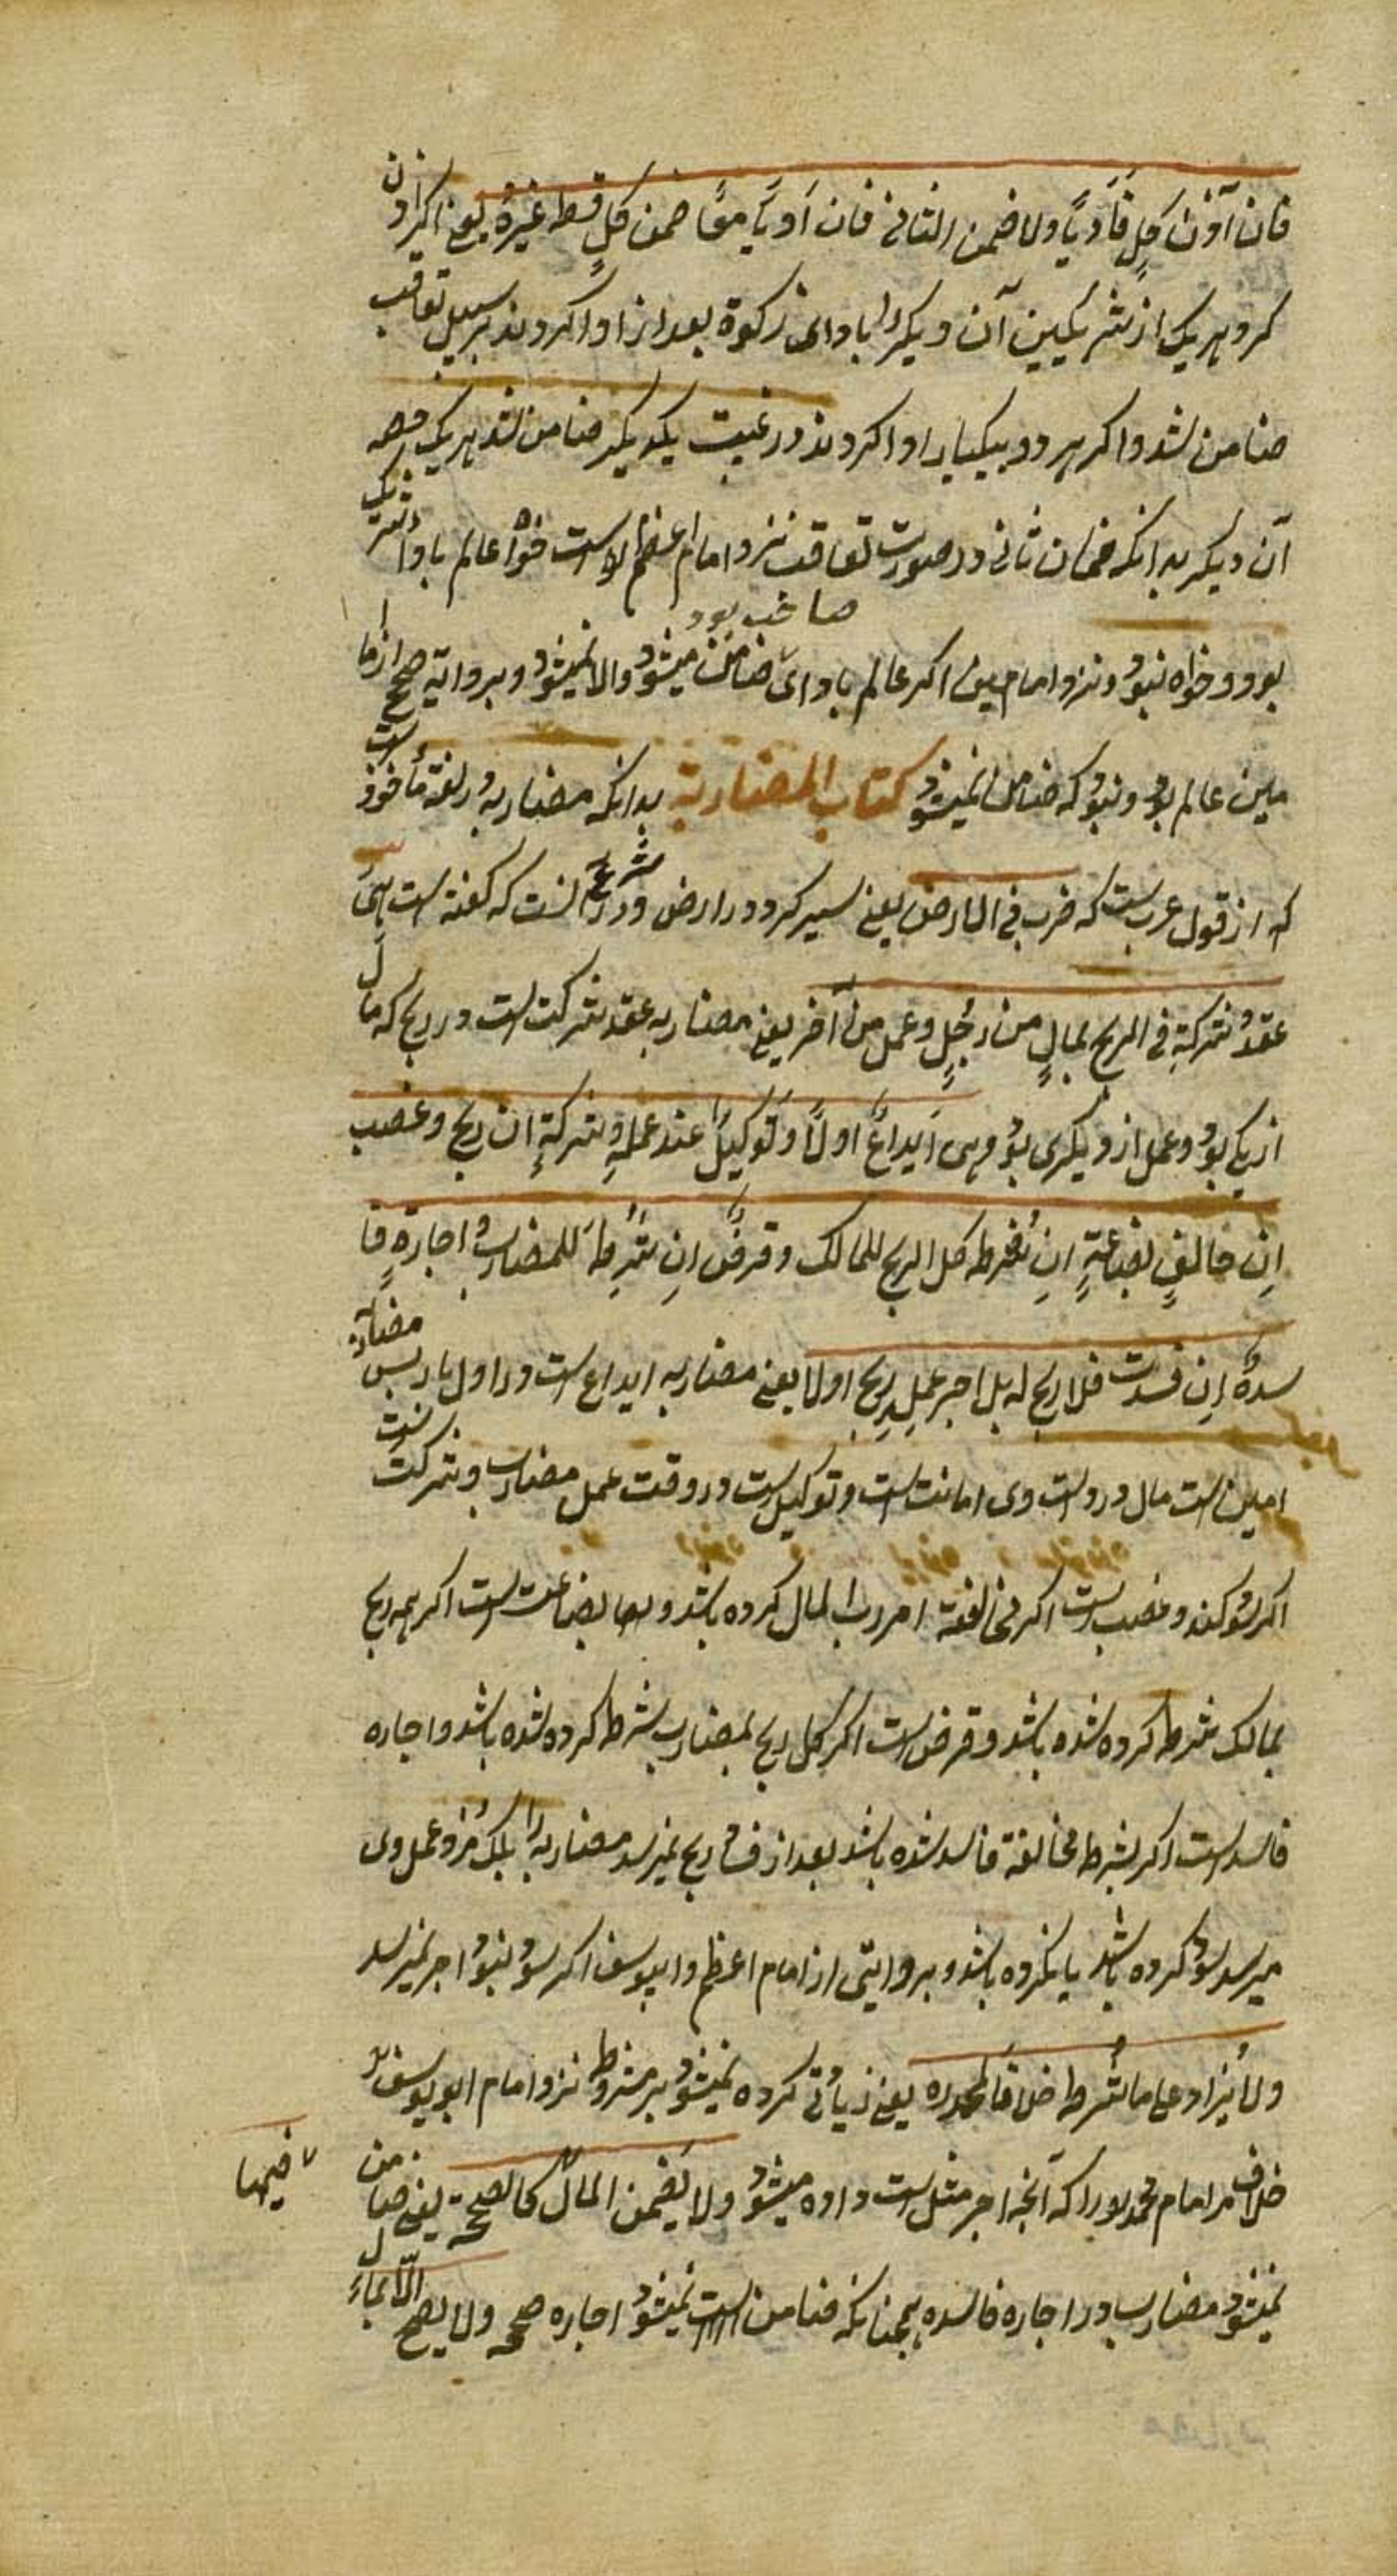 فان آذن کل فادیا ولا ضمن الثانی فان ادیا معا ضمن کل قسط غیره یعنی اکر اذن
کرد هریک از شریکین آن دیکر را باداى زکوة بعد از ان ادا کردند بر سبیل تعاقب
ضامن شد و اکر هر دو بیکبار ادا کردند در غیبت یکدیکر ضامن شد هریک حصه
آن دیکر بدانکه ضمان ثانی در صورت تعاقب نزد امام اعظم است خواه عالم باداى شریک
صاحب بود
بود و خواه نبود و نزد امامین اکر عالم باداى ضامن میشود والا نمیشود و بروایة صحیح از اما
مین عالم بود و نبود که ضامن نمیشود کتاب المضاربة بدانکه مضاربه در لغة مأخوذ است
که از قول عرب است که ضرب فی الارض یعنی سیر کرد در ارض و در شرع آنست که کفته است هی
عقد شرکة فی الربح بمال من رجل وعمل من آخر یعنی مضاربه عقد شرکت است در ربح که مال
از یکی بود و عمل از دیکری بود وهی ایداع اولا وتوکیل عند عمله وشرکة ان ربح وغصب
ان خالف بضاعة ان شرط کل الربح للمالک وقرض ان شرط للمضارب واجارة فا
سدة ان فسدت فلا ربح له بل اجر عمل ربح اولا یعنی مضاربه ایداع است در اول بار پس مضارب
امین است مال در دست وى امانت است و توکیل است در وقت عمل مضارب و شرکت است
اکر سود کند و غصب است اکر مخالفة امر رب المال کرده باشد و بضاعت است اکر همه ربح
بمالک شرط کرده شده باشد و قرض است اکر کل ربح بمضارب شرط کرده شده باشد و اجاره
فاسد است اکر بشرط مخالفة فاسد شده باشد بعد از فساد ربح نمیرسد مضاربه را بلکه مزد عمل وى
میرسد سود کرده باشد یا نکرده باشد و بروایتی از امام اعظم و ابیوسف اکر سود نبود اجر نمیرسد
ولا یزاد على ما شرط خلافا لمحمد ره یعنی زیادتی کرده نمیشود بر مشروط نزد امام ابو یوسف
خلاف مر امام محمد را که آنچه اجر مثل است داده میشود ولا یضمن المال فیها کالصحیحة یعنی ضامن
نمیشود مضارب در اجاره فاسده همچنانکه ضامن نمیشود اجاره صحیحه ولا یصح الا بمال